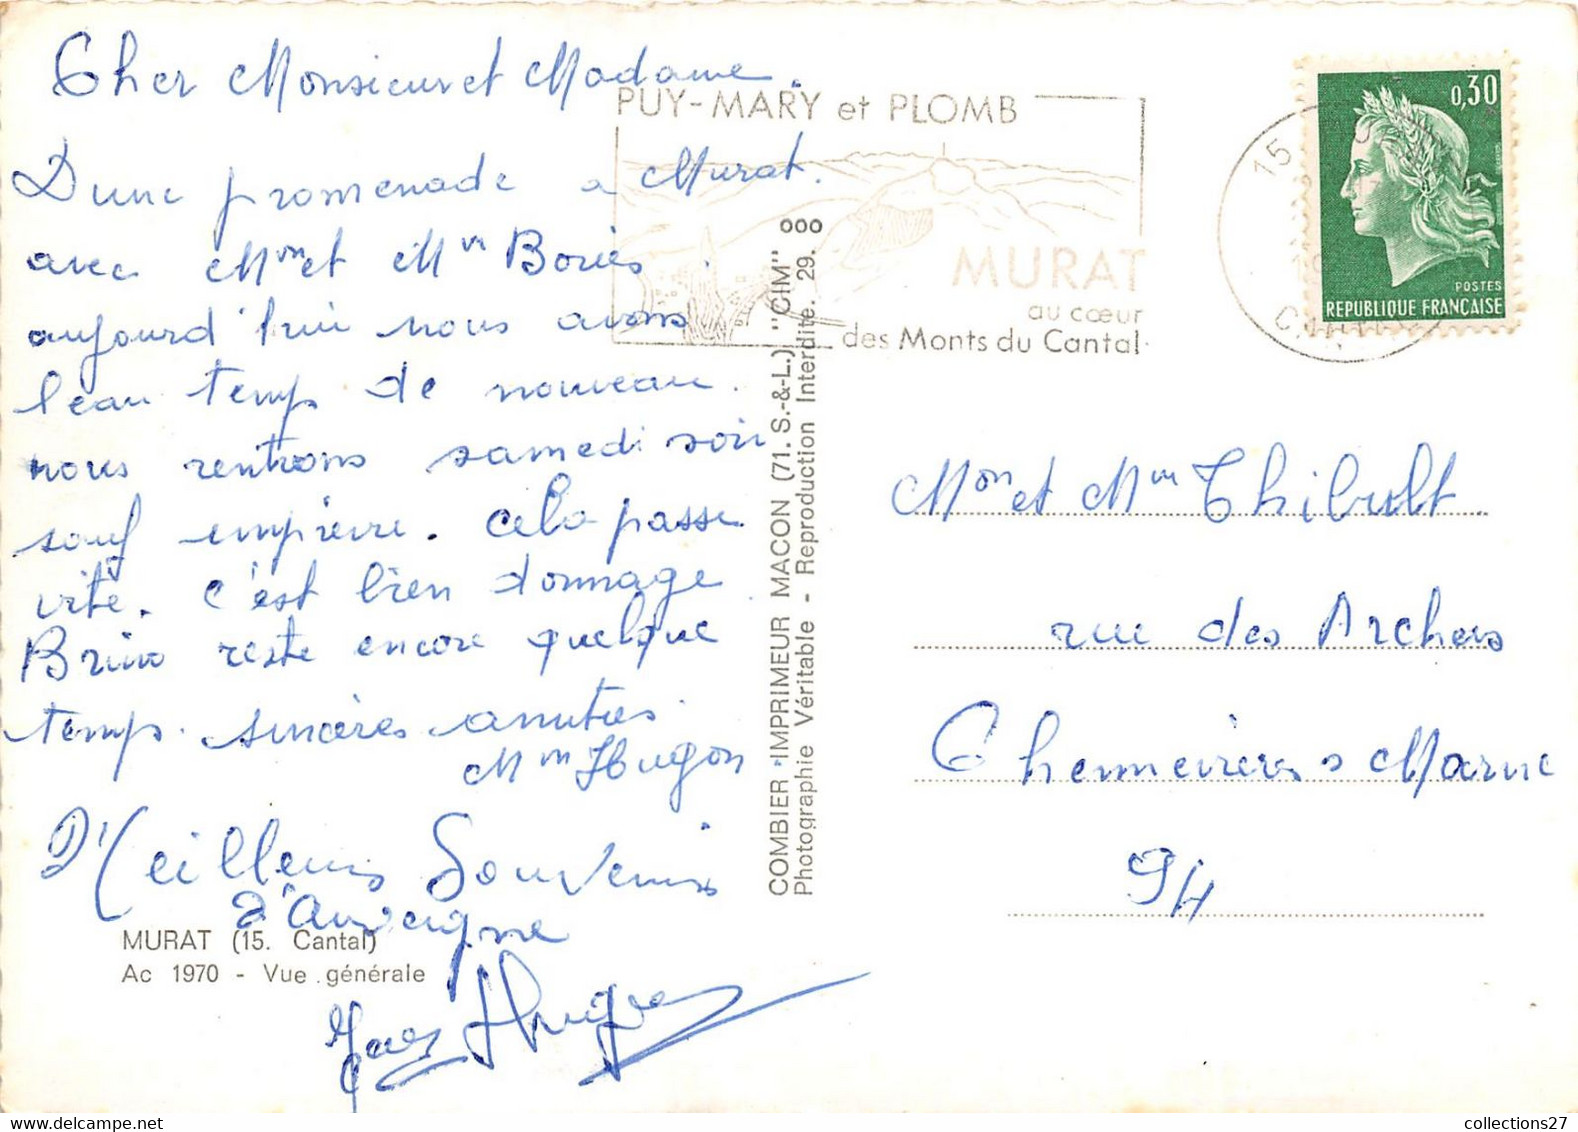 Cher Monsieur et Madame.
D'une promenade a Murat.
avec Mon et Mm Bories.
aujourd'hui nous avons
beau temps de nouveau.
nous rentrons samedi soir
sauf imprévu. cela passe
vite. c'est bien dommage
Bruno reste encore quelque
temps. sincères amitiés.
Mm Hugon
Meilleurs Souvenirs
d'Auvergne
MURAT (15. Cantal)
Ac 1970 - Vue générale
COMBIER IMPRIMEUR MACON (71. S.-&-L.) "CIM" ooo
Photographie Véritable - Reproduction Interdite. 29.
PUY-MARY et PLOMB
MURAT
au cœur
des Monts du Cantal
15
0,30
POSTES
REPUBLIQUE FRANÇAISE
Mon et Mm Thibult
rue des Archers
Chennevières s Marne
94
collections27